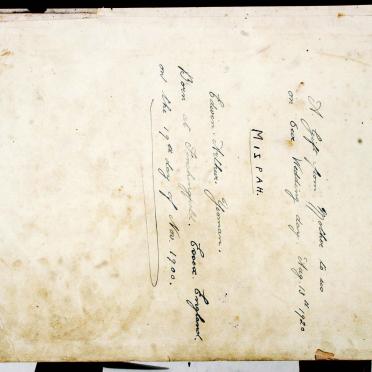 A Gift from Mother to us
on our Wedding day Aug 18th 1920
MISPAH.
Edwin Arthur Yeoman.
Born at Finchingfield. Essex. England.
on the 19th day of Nov. 1900.